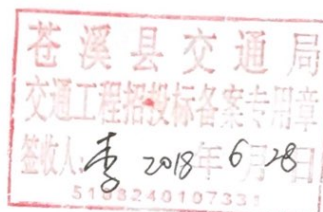 苍溪县交通局
交通工程招投标备案专用章
签收人:李 2018年6月28日
5108240107331